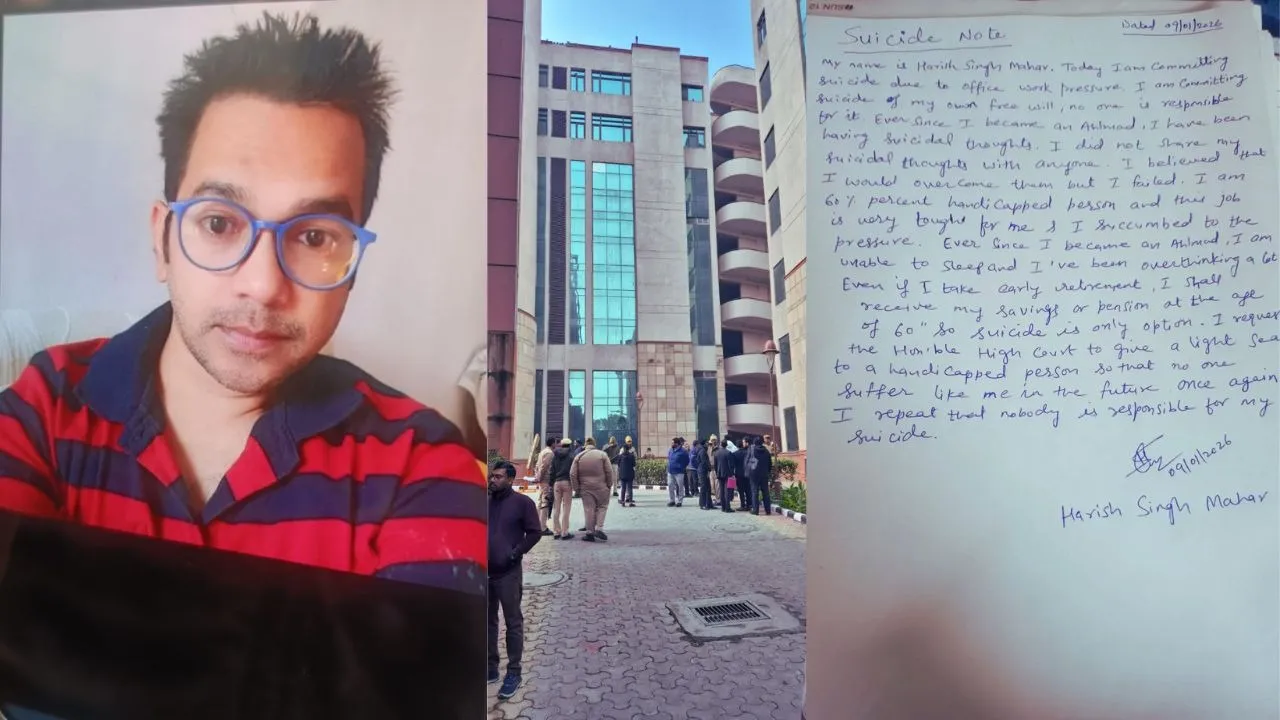 Suicide Note
Dated 09/01/2026
My name is Harish Singh Mahar. Today I am Committing
Suicide due to office work pressure. I am Committing
Suicide of my own free will, no one is responsible
for it Ever Since I became an Ahlmad, I have been
having Suicidal thoughts. I did not share my
Suicidal thoughts with anyone. I believed that
I would overcome them but I failed. I am
60% percent handicapped person and this job
is very tought for me & I succumbed to the
pressure. Ever Since I became an Ahlmad, I am
unable to sleep and I've been overthinking a lot
Even if I take early retirement, I shall
receive my savings or pension at the age
of 60" so suicide is only option. I reques
the Hon'ble High Court to give a light Sea
to a handicapped person so that no one
Suffer like me in the future once again
I repeat that nobody is responsible for my
Suicide.
09/01/2026
Harish Singh Mahar